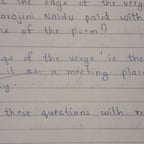 the edge of the verge
Sarojini Naidu paint with
of the poem?
ge of the verge' is the
it as a meeting place
y.
these questions with re